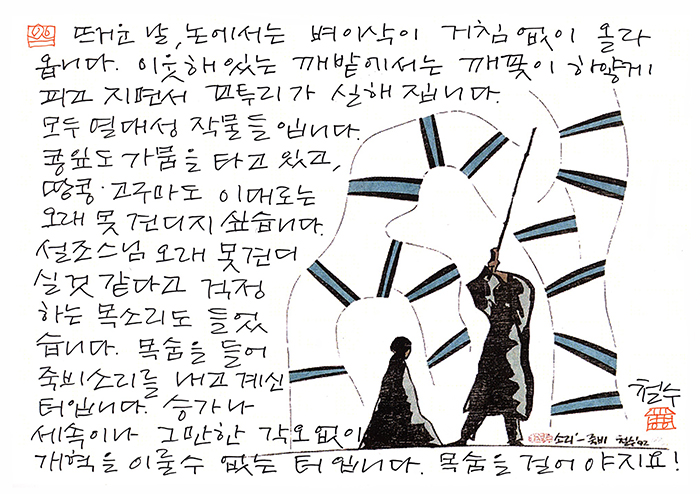 뜨거운 날, 논에서는 벼이삭이 거침없이 올라
옵니다. 이웃해있는 깨밭에서는 깨꽃이 하얗게
피고 지면서 꼬투리가 실해 집니다.
모두 열대성 작물들입니다.
콩잎도 가뭄을 타고 있고,
땅콩·고구마도 이대로는
오래 못 견디지 싶습니다.
설조스님 오래 못견디
실것 같다고 걱정
하는 목소리도 들었
습니다. 목숨을 들어
죽비소리를 내고 계신
터입니다. 승가나
세속이나 그만한 각오없이
개혁을 이룰수 없는 터입니다. 목숨을 걸어야지요!
철수
소리-죽비 철수'02